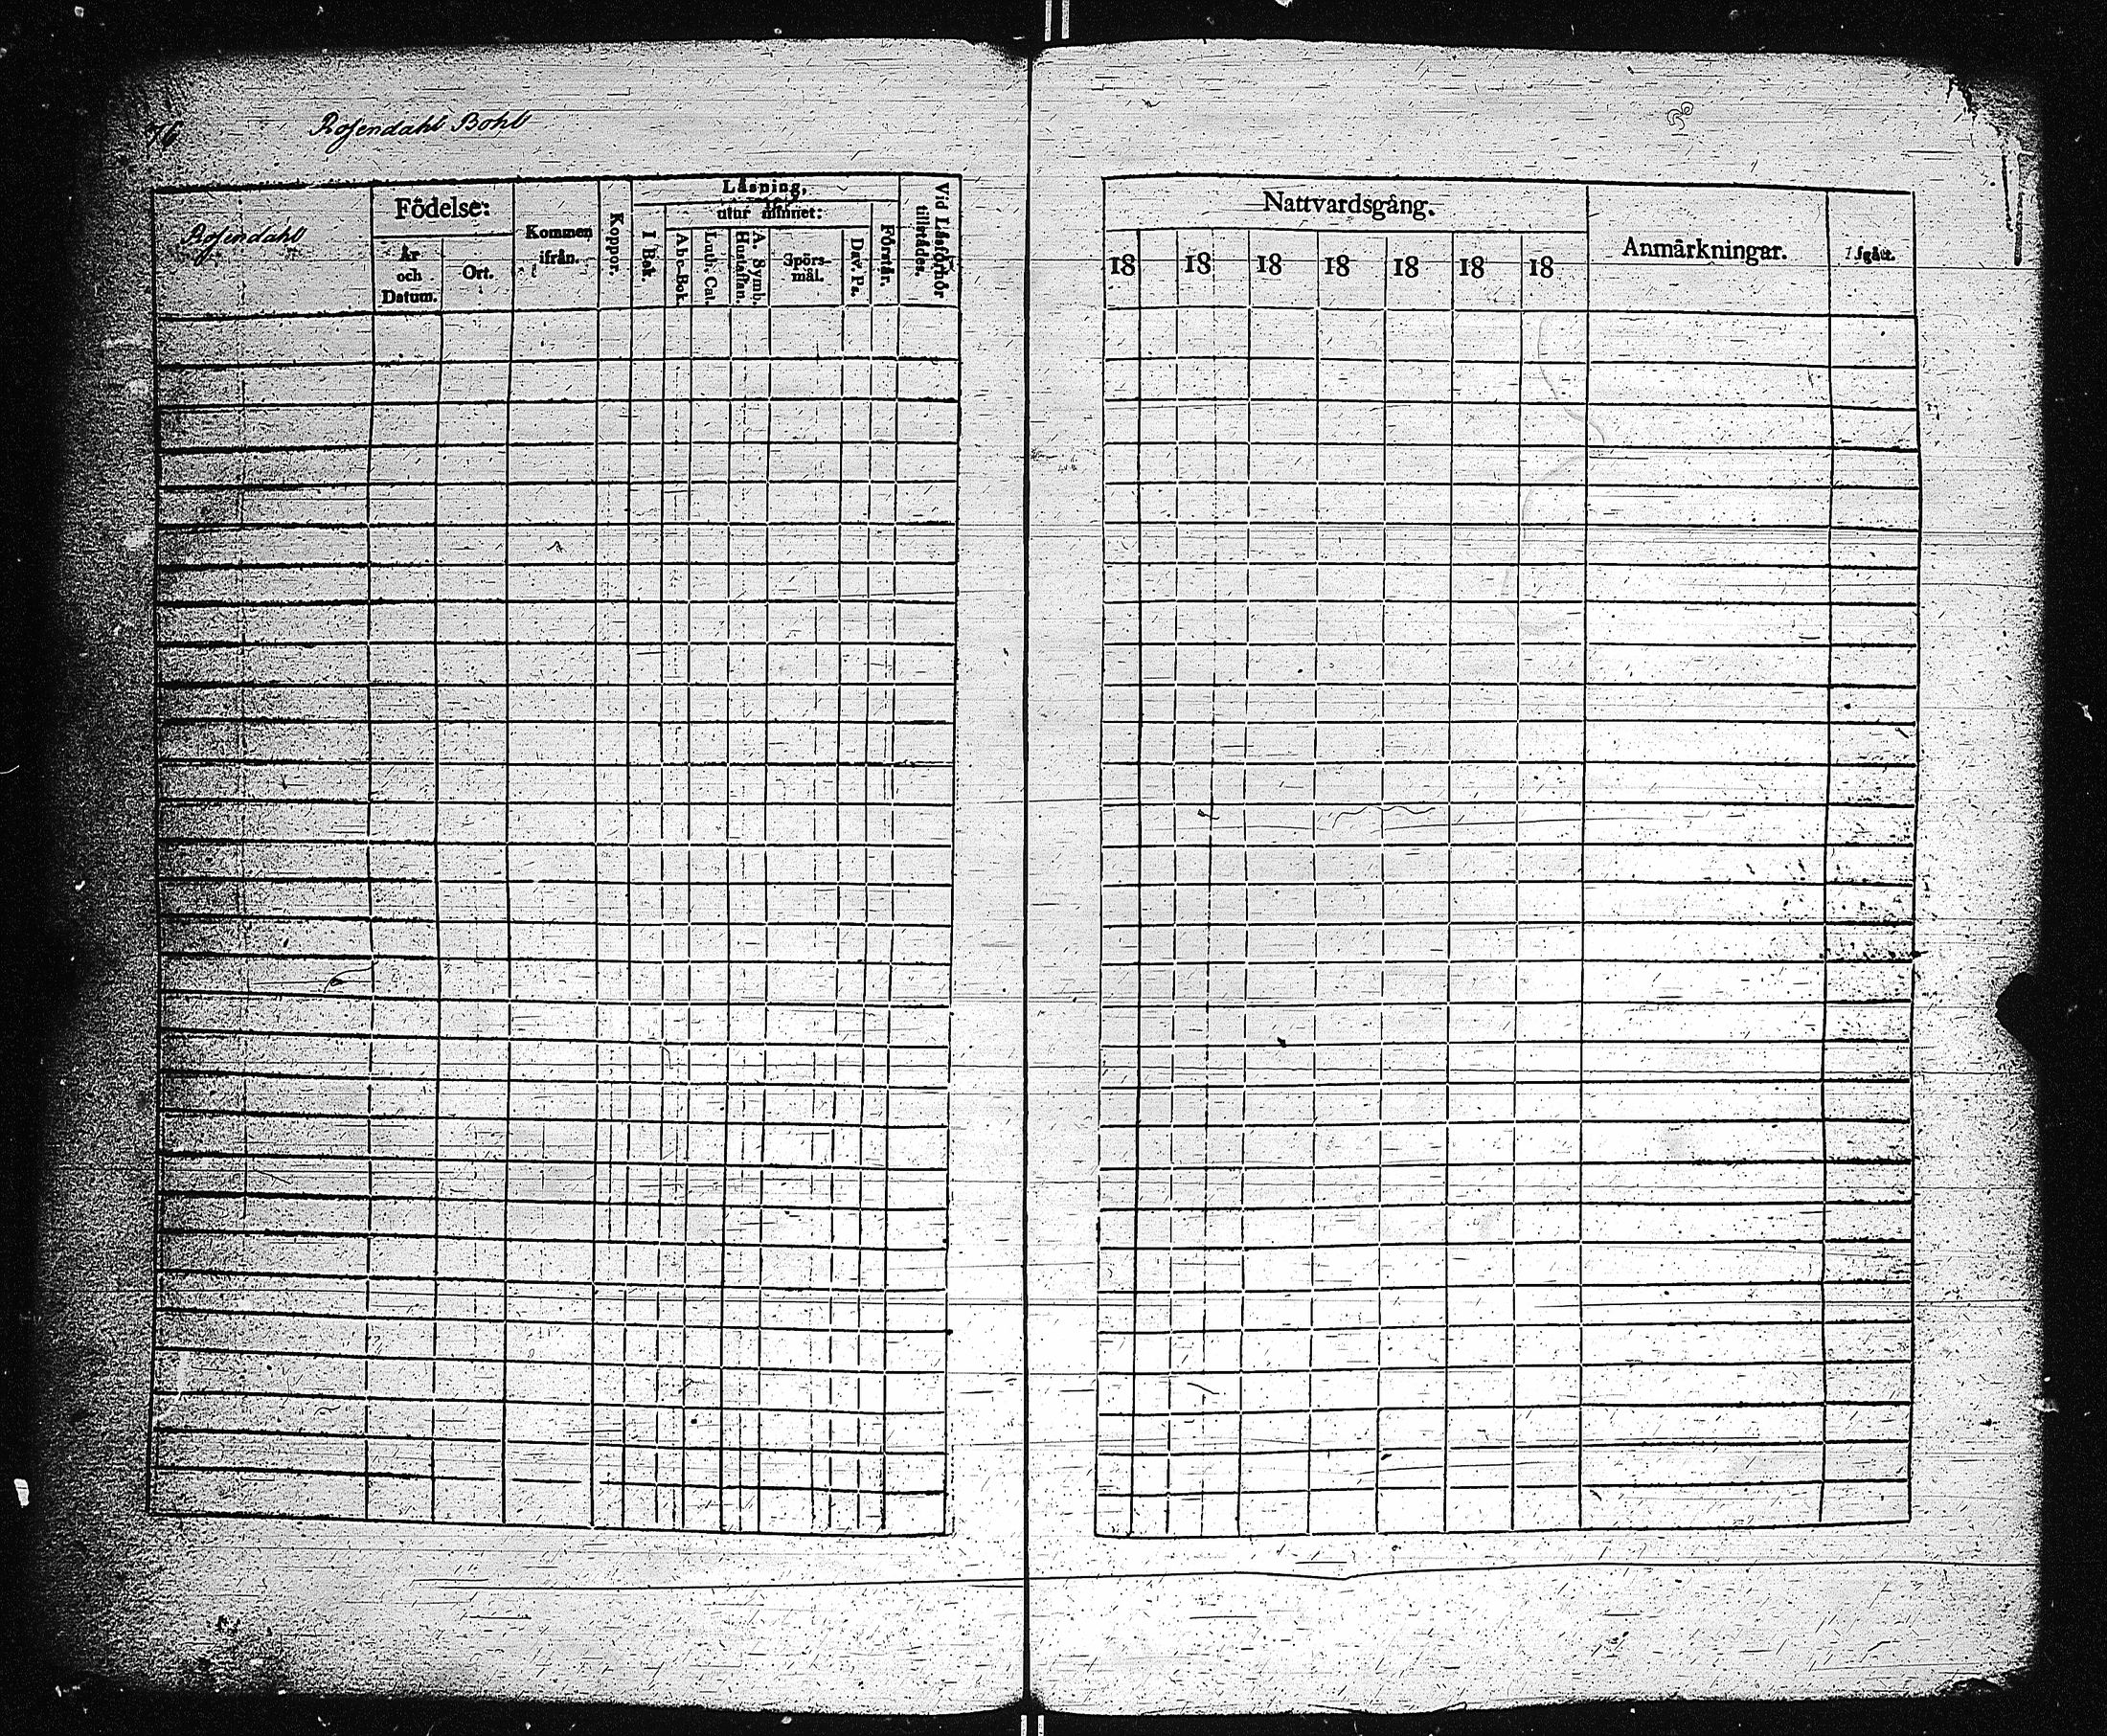 76
Rosendahl Bohl
Rosendahl
Födelse:
År och Datum.
Ort.
Kommen ifrån.
Koppor.
Läsning,
utur minnet:
I Bok.
Abc-Bok.
Luth. Cat.
Hustaflan.
A. Symb.
Spörsmål.
Dav. Ps.
Förstår.
Vid Läsförhör tillstädes.
Nattvardsgång.
18 18 18 18 18 18 18
Anmärkningar.
Afgått.